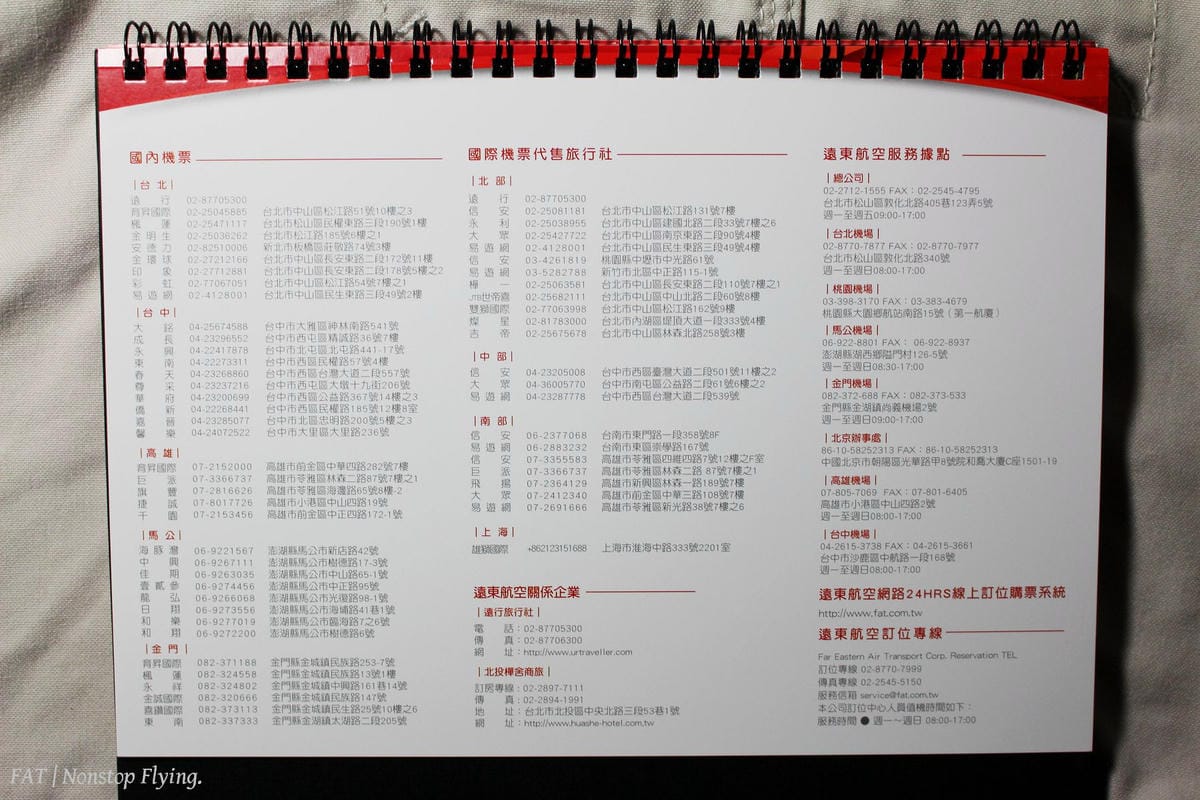 國內機票
|台 北|
遠 行 02-87705300
育昇國際 02-25045885 台北市中山區松江路51號10樓之3
楓 蓮 02-25471117 台北市松山區民權東路三段190號1樓
金 明 生 02-25036262 台北市松江路185號6樓之1
安 德 力 02-82510006 新北市板橋區莊敬路74號3樓
金 環 球 02-27212166 台北市中山區長安東路二段172號11樓
印 象 02-27712881 台北市中山區長安東路二段178號5樓之2
彩 虹 02-77067051 台北市中山區松江路54號7樓之1
易 遊 網 02-4128001 台北市中山區民生東路三段49號2樓
|台 中|
大 銘 04-25674588 台中市大雅區神林南路541號
成 長 04-23296552 台中市西屯區精誠路36號7樓
永 興 04-22417878 台中市北屯區北屯路441-17號
東 南 04-22273311 台中市西區民權路57號4樓
春 天 04-23268860 台中市西區台灣大道二段557號
尊 采 04-23237216 台中市西屯區大墩十九街206號
華 府 04-23200699 台中市西區公益路367號14樓之3
僑 新 04-22268441 台中市西區民權路185號12樓8室
嘉 晉 04-23285077 台中市北區忠明路200號5樓之3
馨 樂 04-24072522 台中市大里區大里路236號
|高 雄|
育昇國際 07-2152000 高雄市前金區中華四路282號7樓
巨 派 07-3366737 高雄市苓雅區林森二路87號7樓之1
旗 豐 07-2816626 高雄市苓雅區海邊路65號8樓-2
捷 誠 07-8017726 高雄市小港區中山四路19號
千 國 07-2153456 高雄市前金區中正四路172-1號
|馬 公|
海 豚 灣 06-9221567 澎湖縣馬公市新店路42號
中 興 06-9267111 澎湖縣馬公市樹德路17-3號
佳 期 06-9263035 澎湖縣馬公市中山路65-1號
壹 貳 參 06-9274456 澎湖縣馬公市中正路95號
龍 弘 06-9266068 澎湖縣馬公市光復路98-1號
日 翔 06-9273556 澎湖縣馬公市海埔路41巷1號
和 樂 06-9277019 澎湖縣馬公市臨海路7之6號
和 翔 06-9272200 澎湖縣馬公市樹德路6號
|金 門|
育昇國際 082-371188 金門縣金城鎮民族路253-7號
楓 蓮 082-324558 金門縣金城鎮民族路13號1樓
永 祥 082-324802 金門縣金城鎮中興路161巷14號
金誠國際 082-320666 金門縣金城鎮民族路147號
喜鑽國際 082-373113 金門縣金城鎮民生路25號10樓之6
東 南 082-337333 金門縣金湖鎮太湖路二段205號
國際機票代售旅行社
|北 部|
遠 行 02-87705300
信 安 02-25081181 台北市中山區松江路131號7樓
永 利 02-25038955 台北市中山區建國北路二段33號7樓之6
大 眾 02-25427722 台北市中山區南京東路二段90號4樓
易 遊 網 02-4128001 台北市中山區民生東路三段49號4樓
信 安 03-4261819 桃園縣中壢市中光路61號
易 遊 網 03-5282788 新竹市北區中正路115-1號
樺 一 02-25063581 台北市中山區長安東路二段110號7樓之1
JTB世帝喜 02-25682111 台北市中山區中山北路二段60號8樓
雙獅國際 02-77063998 台北市中山區松江路162號9樓
燦 星 02-81783000 台北市內湖區堤頂大道一段333號4樓
吉 帝 02-25675678 台北市中山區林森北路258號3樓
|中 部|
信 安 04-23205008 台中市西區臺灣大道二段501號11樓之2
大 眾 04-36005770 台中市南屯區公益路二段61號6樓之2
易 遊 網 04-23287778 台中市西區台灣大道二段539號
|南 部|
信 安 06-2377068 台南市東門路一段358號8F
易 遊 網 06-2883232 台南市東區崇學路167號
信 安 07-3355583 高雄市苓雅區四維四路7號12樓之F室
巨 派 07-3366737 高雄市苓雅區林森二路 87號7樓之1
飛 揚 07-2364129 高雄市新興區林森一路189號7樓
大 眾 07-2412340 高雄市前金區中華三路108號7樓
易 遊 網 07-2691666 高雄市苓雅區新光路38號7樓之6
|上 海|
雄獅國際 +862123151688 上海市淮海中路333號2201室
遠東航空關係企業
|遠行旅行社|
電 話：02-87705300
傳 真：02-87706300
網 址：http://www.urtraveller.com
|北投樺舍商旅|
訂房專線：02-2897-7111
傳 真：02-2894-1991
地 址：台北市北投區中央北路三段53巷1號
網 址：http://www.huashe-hotel.com.tw
遠東航空服務據點
|總公司|
02-2712-1555 FAX：02-2545-4795
台北市松山區敦化北路405巷123弄5號
週一至週五09:00-17:00
|台北機場|
02-8770-7877 FAX：02-8770-7977
台北市松山區敦化北路340號
週一至週日08:00-17:00
|桃園機場|
03-398-3170 FAX：03-383-4679
桃園縣大園鄉航站南路15號（第一航廈）
|馬公機場|
06-922-8801 FAX： 06-922-8937
澎湖縣湖西鄉隘門村126-5號
週一至週日08:30-17:00
|金門機場|
082-372-688 FAX：082-373-533
金門縣金湖鎮尚義機場2號
週一至週日09:00-17:00
|北京辦事處|
86-10-58252313 FAX：86-10-58252313
中國北京市朝陽區光華路甲8號院和喬大廈C座1501-19
|高雄機場|
07-805-7069 FAX：07-801-6405
高雄市小港區中山四路2號
週一至週日08:00-17:00
|台中機場|
04-2615-3738 FAX：04-2615-3661
台中市沙鹿區中航路一段168號
週一至週日08:00-17:00
遠東航空網路24HRS線上訂位購票系統
http://www.fat.com.tw
遠東航空訂位專線
Far Eastern Air Transport Corp. Reservation TEL
訂位專線 02-8770-7999
傳真專線 02-2545-5150
服務信箱 service@fat.com.tw
本公司訂位中心人員值機時間如下：
服務時間 ● 週一～週日 08:00-17:00
FAT | Nonstop Flying.